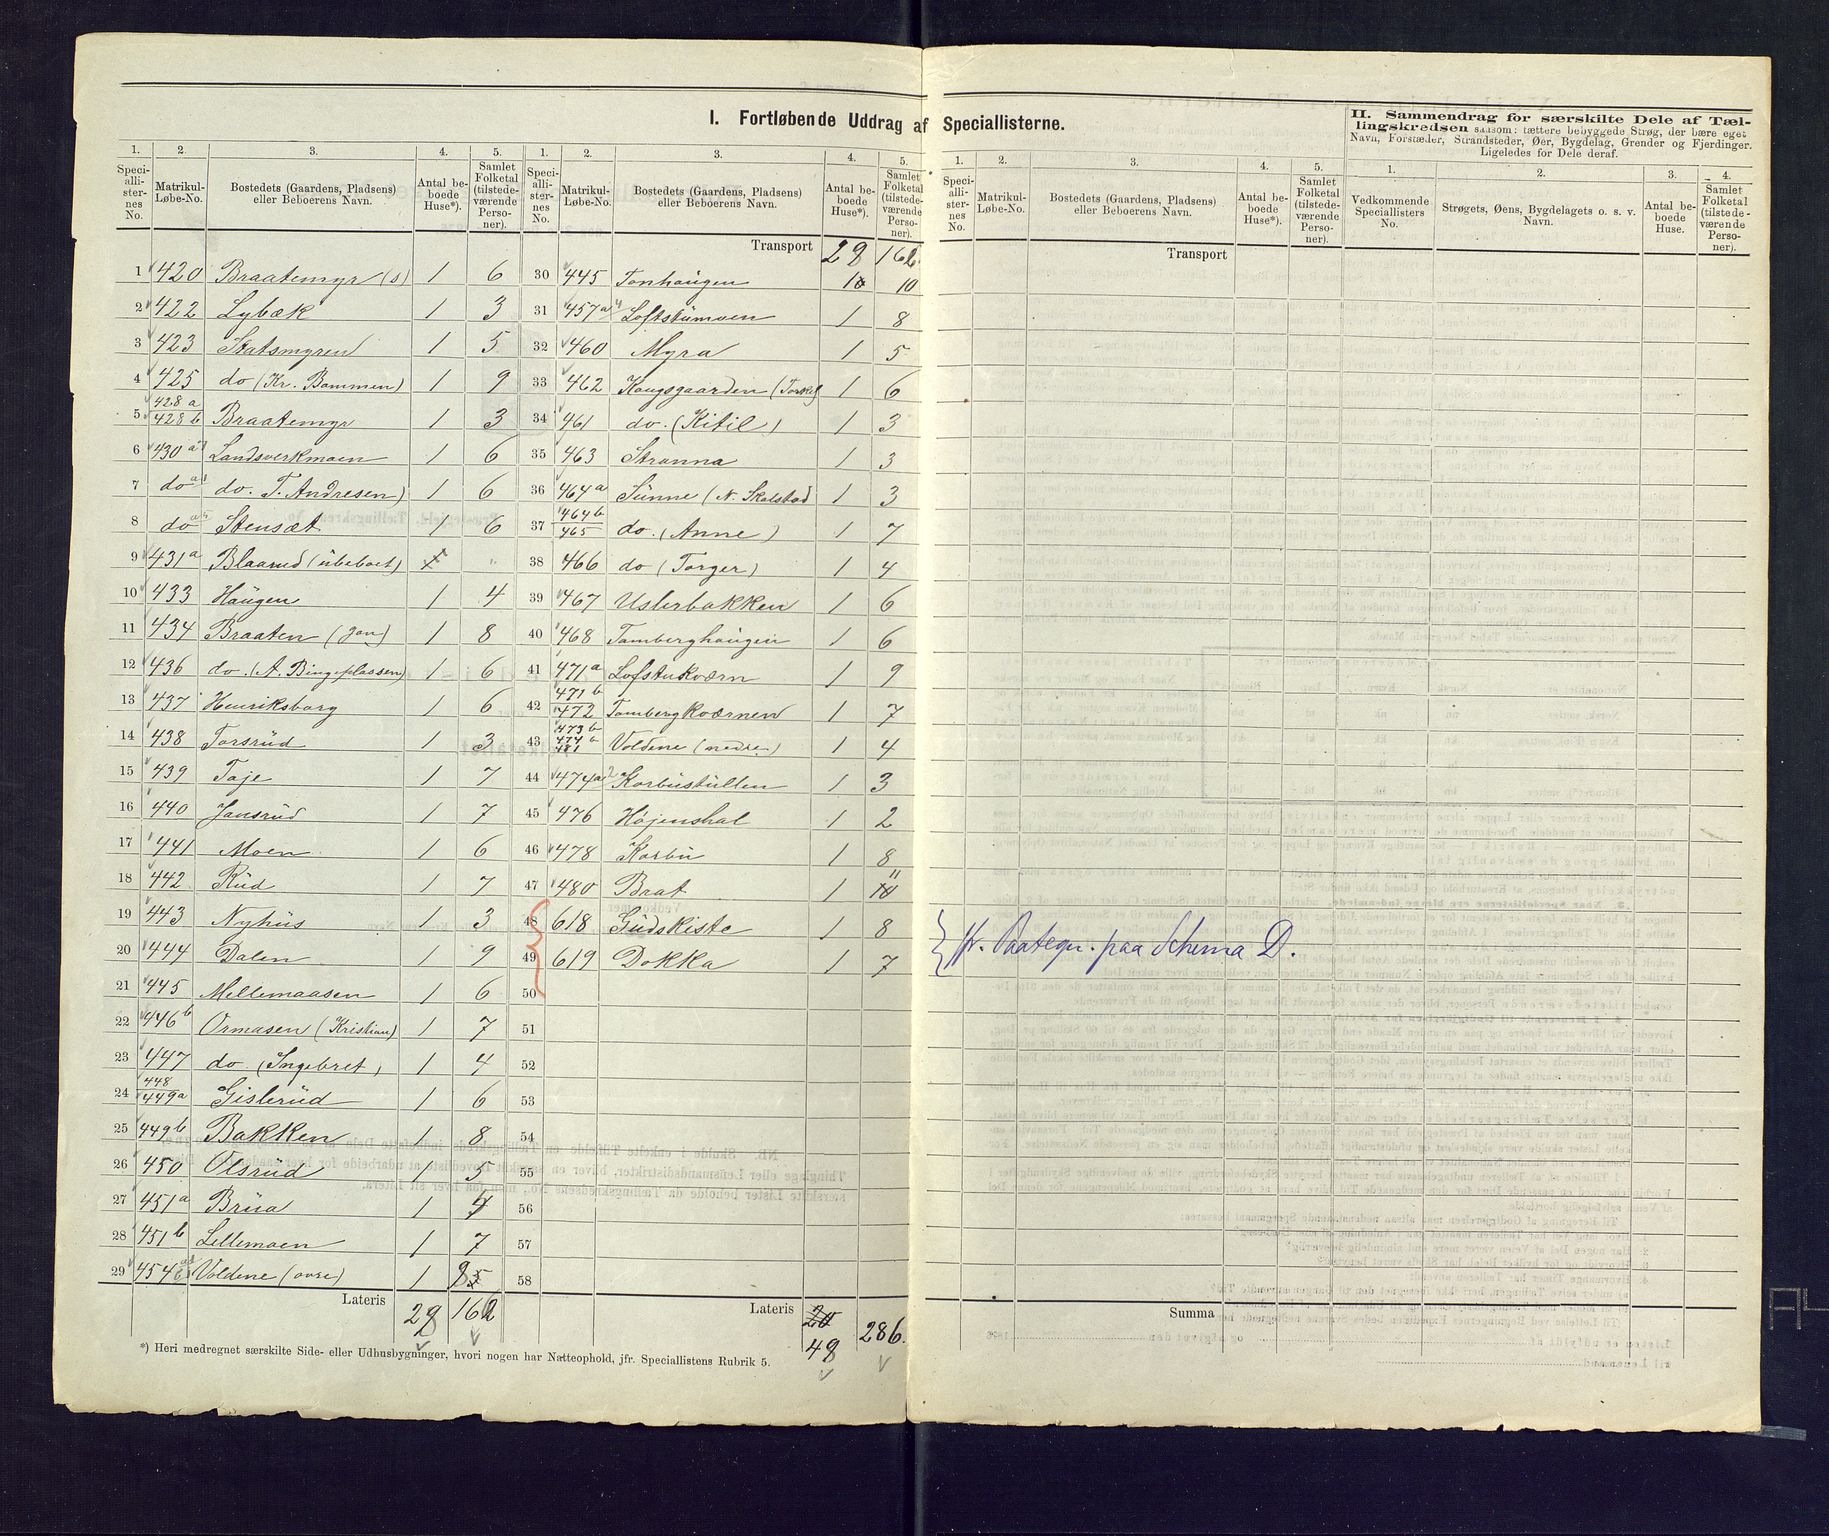 I. Fortløbende Uddrag af Speciallisterne.
II. Sammendrag for særskilte Dele af Tællingskredsen saasom: tættere bebyggede Strøg, der bære eget Navn, Forstæder, Strandsteder, Øer, Bygdelag, Grender og Fjerdinger. Ligeledes for Dele deraf.
1. 2. 3. 4. 5. 1. 2. 3. 4. 5.
Speciallisternes No. Matrikul-Løbe-No. Bostedets (Gaardens, Pladsens) eller Beboerens Navn. Antal beboede Huse*). Samlet Folketal (tilstedeværende Personer).
Speciallisternes No. Matrikul-Løbe-No. Bostedets (Gaardens, Pladsens) eller Beboerens Navn. Antal beboede Huse*). Samlet Folketal (tilstedeværende Personer).
1 420 Braatemyr (s) 1 6
2 422 Lybæk 1 3
3 423 Skatsmyren 1 5
4 425 do (Kr. Bommen) 1 9
5 428 a 428 b Braatemyr 1 3
6 430 a Landsverkmoen 1 6
7 do do. T. Andresen) 1 6
8 do Stensæt 1 6
9 431a Blaarud (ubeboet) "
10 433 Haugen 1 4
11 434 Braaten (Jan) 1 8
12 436 do. (A. Bingeplassen) 1 6
13 437 Henriksborg 1 6
14 438 Torsrud 1 3
15 439 Taje 1 7
16 440 Jansrud 1 7
17 441 Moen 1 6
18 442 Rud 1 7
19 443 Nyhus 1 3
20 444 Dalen 1 9
21 445 Mellemaasen 1 6
22 446b Ormasen (Kristian) 1 7
23 447 do (Ingebret) 1 4
24 448 449a Gislerud 1 6
25 449b Bakken 1 8
26 450 Olsrud 1 5
27 451a Brua 1
28 451b Lillemoen 1 7
29 454 Voldene (øvre) 1
Lateris 28 162
Transport 28 162
30 445 Tonhaugen 1 10
31 457a Loftstumoen 1 8
32 460 Myra 1 5
33 462 Kongsgaarden 1 6
34 461 do. (Kitil) 1 3
35 463 Stranna 1 3
36 464a Sunne (N. Skalstad 1 3
37 464b 465 do. (Anne) 1 7
38 466 do (Torger) 1 4
39 467 Uslerbakken 1 6
40 468 Tomberghaugen 1 6
41 471a Lofstukværn 1 9
42 471b 472 Tombergkværnen 1 7
43 473b 474b 481 Voldene (nedre) 1 4
44 474a Korbustullen 1 3
45 476 Højenshal 1 2
46 478 Korbu 1 8
47 480 Brat 1 11
48 618 Gudskiste 1 8
49 619 Dokka 1 7
50
51
52
53
54
55
56
57
58
Lateris 48 286.
*) Heri medregnet særskilte Side- eller Udhusbygninger, hvori nogen har Natteophold, jfr. Speciallistens Rubrik 5.
1. 2. 3. 4. 5. 1. 2. 3. 4.
Speciallisternes No. Matrikul-Løbe-No. Bostedets (Gaardens, Pladsens) eller Beboerens Navn. Antal beboede Huse*). Samlet Folketal (tilstedeværende Personer).
Vedkommende Speciallisters No. Strøgets, Øens, Bygdelagets o. s. v. Navn. Antal beboede Huse. Samlet Folketal (tilstedeværende Personer).
Transport
jfr. Paategn. paa Schema D.
Summa